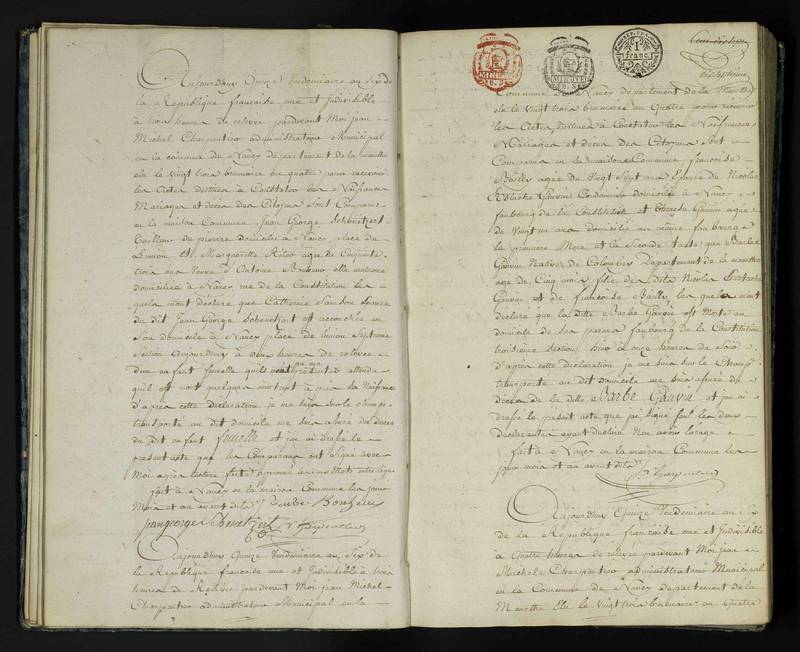 Aujourdhuy Quinze Vendemiaire an Six de
la Republique française une et Indivisible
à trois heures de relevé pardevant Moi jean
Michel Charpentier administrateur Municipal
en la commune de Nancy departement de la meurthe
elu le vingt trois brumaire an quatre pour recevoir
les Actes destinés à Constater les Naissances
Mariages et décès des Citoyens sont Comparus
en la maison Commune jean George
tailleur de pierre domicilié à Nancy place de
Lunion et Margueritte agée de Cinquante
trois ans veuve d'Antoine Bonheur elle
domiciliée à Nancy rue de la Constitution les
quels mont déclaré que Catherine Samson épouse
du dit jean George est accouchée en
Son domicile à Nancy place de lunion Septieme
Section Aujourdhuy à heures de relevée
dun enfant femelle quils nont pu me présenter attendu
quil est mort quelques instant après sa Naissance
d'après cette déclaration je me suis sur le champ
transporté au dit domicile me suis assuré du decès
du dit enfant femelle et j'en ai dressé le
présent acte que les Comparans ont Signé avec
Moi après lecture faite approuvé les mots entre ligne
fait à Nancy en la maison Commune les jour
Mois et an avant dits veuve Bonheur
jean george
Charpentier
Aujourdhuy Quinze Vendemiaire an Six de
la Republique française une et Indivisible à trois
heures de Relevée pardevant Moi jean Michel
Charpentier administrateur Municipal en la
MINUTES
MINUTES
1 franc
dixseptieme
Commune de Nancy département de la Meurthe
elu le vingt trois brumaire an Quatre pour recevoir
les Actes destinés à Constater les Naissances
Mariages et décès des Citoyens sont
Comparus en la maison Commune françoise
Bailly agée de Vingt Sept ans Epouse de Nicolas
Gauvin Cordonnier domicilié à Nancy
faubourg de la Constitution et Therese Gauvin agée
de vingt un ans domiciliée au même faubourg
la premiere Mere et la Seconde tante que Barbe
Gauvin Native de Colombey Departement de la meurthe
agée de Cinq mois fille des dits Nicolas
Gauvin et de françoise Bailly les quels mont
déclaré que la ditte Barbe Gauvin est Morte au
domicile de ses parens faubourg de la Constitution
troisieme Section hier à onze heures du soir
d'après cette déclaration je me suis sur le Champ
transporté au dit domicile me suis assuré du
décès de la ditte Barbe Gauvin et j'en ai
dressé le présent acte que j'ai signé seul les deux
déclarantes ayant déclaré N'en avoir l'usage
fait à Nancy en la maison Commune les
jour mois et an avant dits
Charpentier
Aujourdhuy Quinze Vendemiaire an Six
de la Republique française une et Indivisible
à Quatre heures de relevée pardevant Moi jean
Michel Charpentier administrateur Municipal
en la Commune de Nancy departement de la
Meurthe Elu le vingt trois brumaire an Quatre